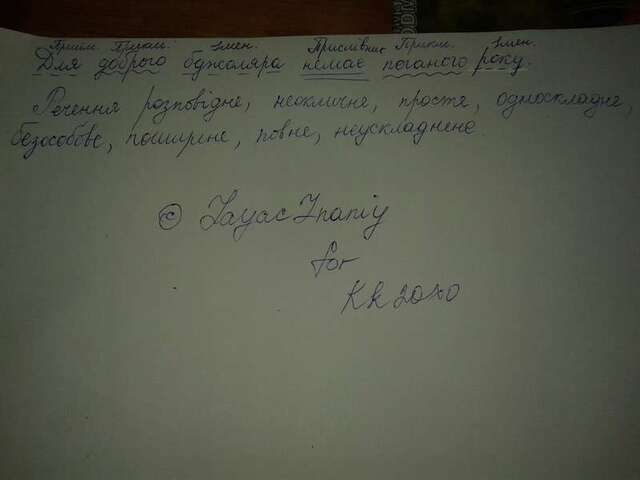 Прийм. Прикм. Імен. Прислівник Прикм. Імен.
Для доброго бджоляра немає поганого року.
Речення розповідне, неокличне, просте, односкладне,
безособове, поширене, повне, неускладнене.
©
for